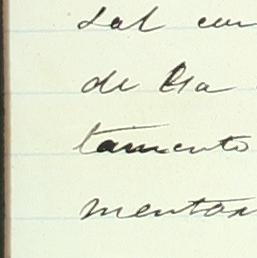 sal con
de la
tamento
mentos